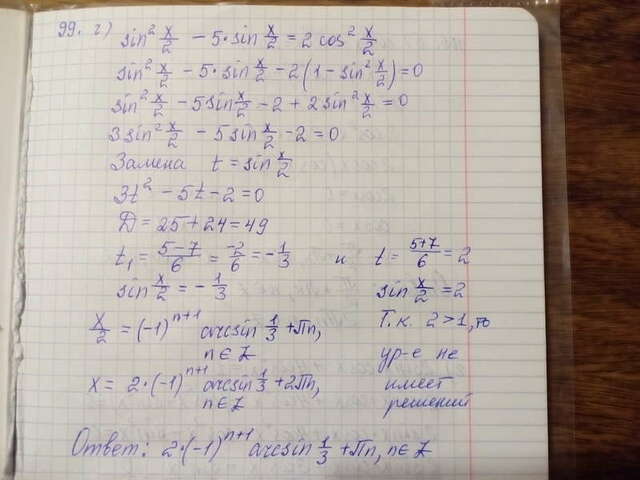 99. г) sin² x/2 - 5·sin x/2 = 2 cos² x/2
sin² x/2 - 5·sin x/2 - 2(1 - sin² x/2) = 0
sin² x/2 - 5sin x/2 - 2 + 2sin² x/2 = 0
3sin² x/2 - 5sin x/2 - 2 = 0
Замена t = sin x/2
3t² - 5t - 2 = 0
D = 25 + 24 = 49
t₁ = (5-7)/6 = -2/6 = -1/3 и t = (5+7)/6 = 2
sin x/2 = -1/3 sin x/2 = 2
x/2 = (-1)ⁿ⁺¹ arcsin 1/3 + πn, Т.к. 2>1, то
n∈Z ур-е не
x = 2·(-1)ⁿ⁺¹ arcsin 1/3 + 2πn, имеет
n∈Z решений
Ответ: 2·(-1)ⁿ⁺¹ arcsin 1/3 + πn, n∈Z